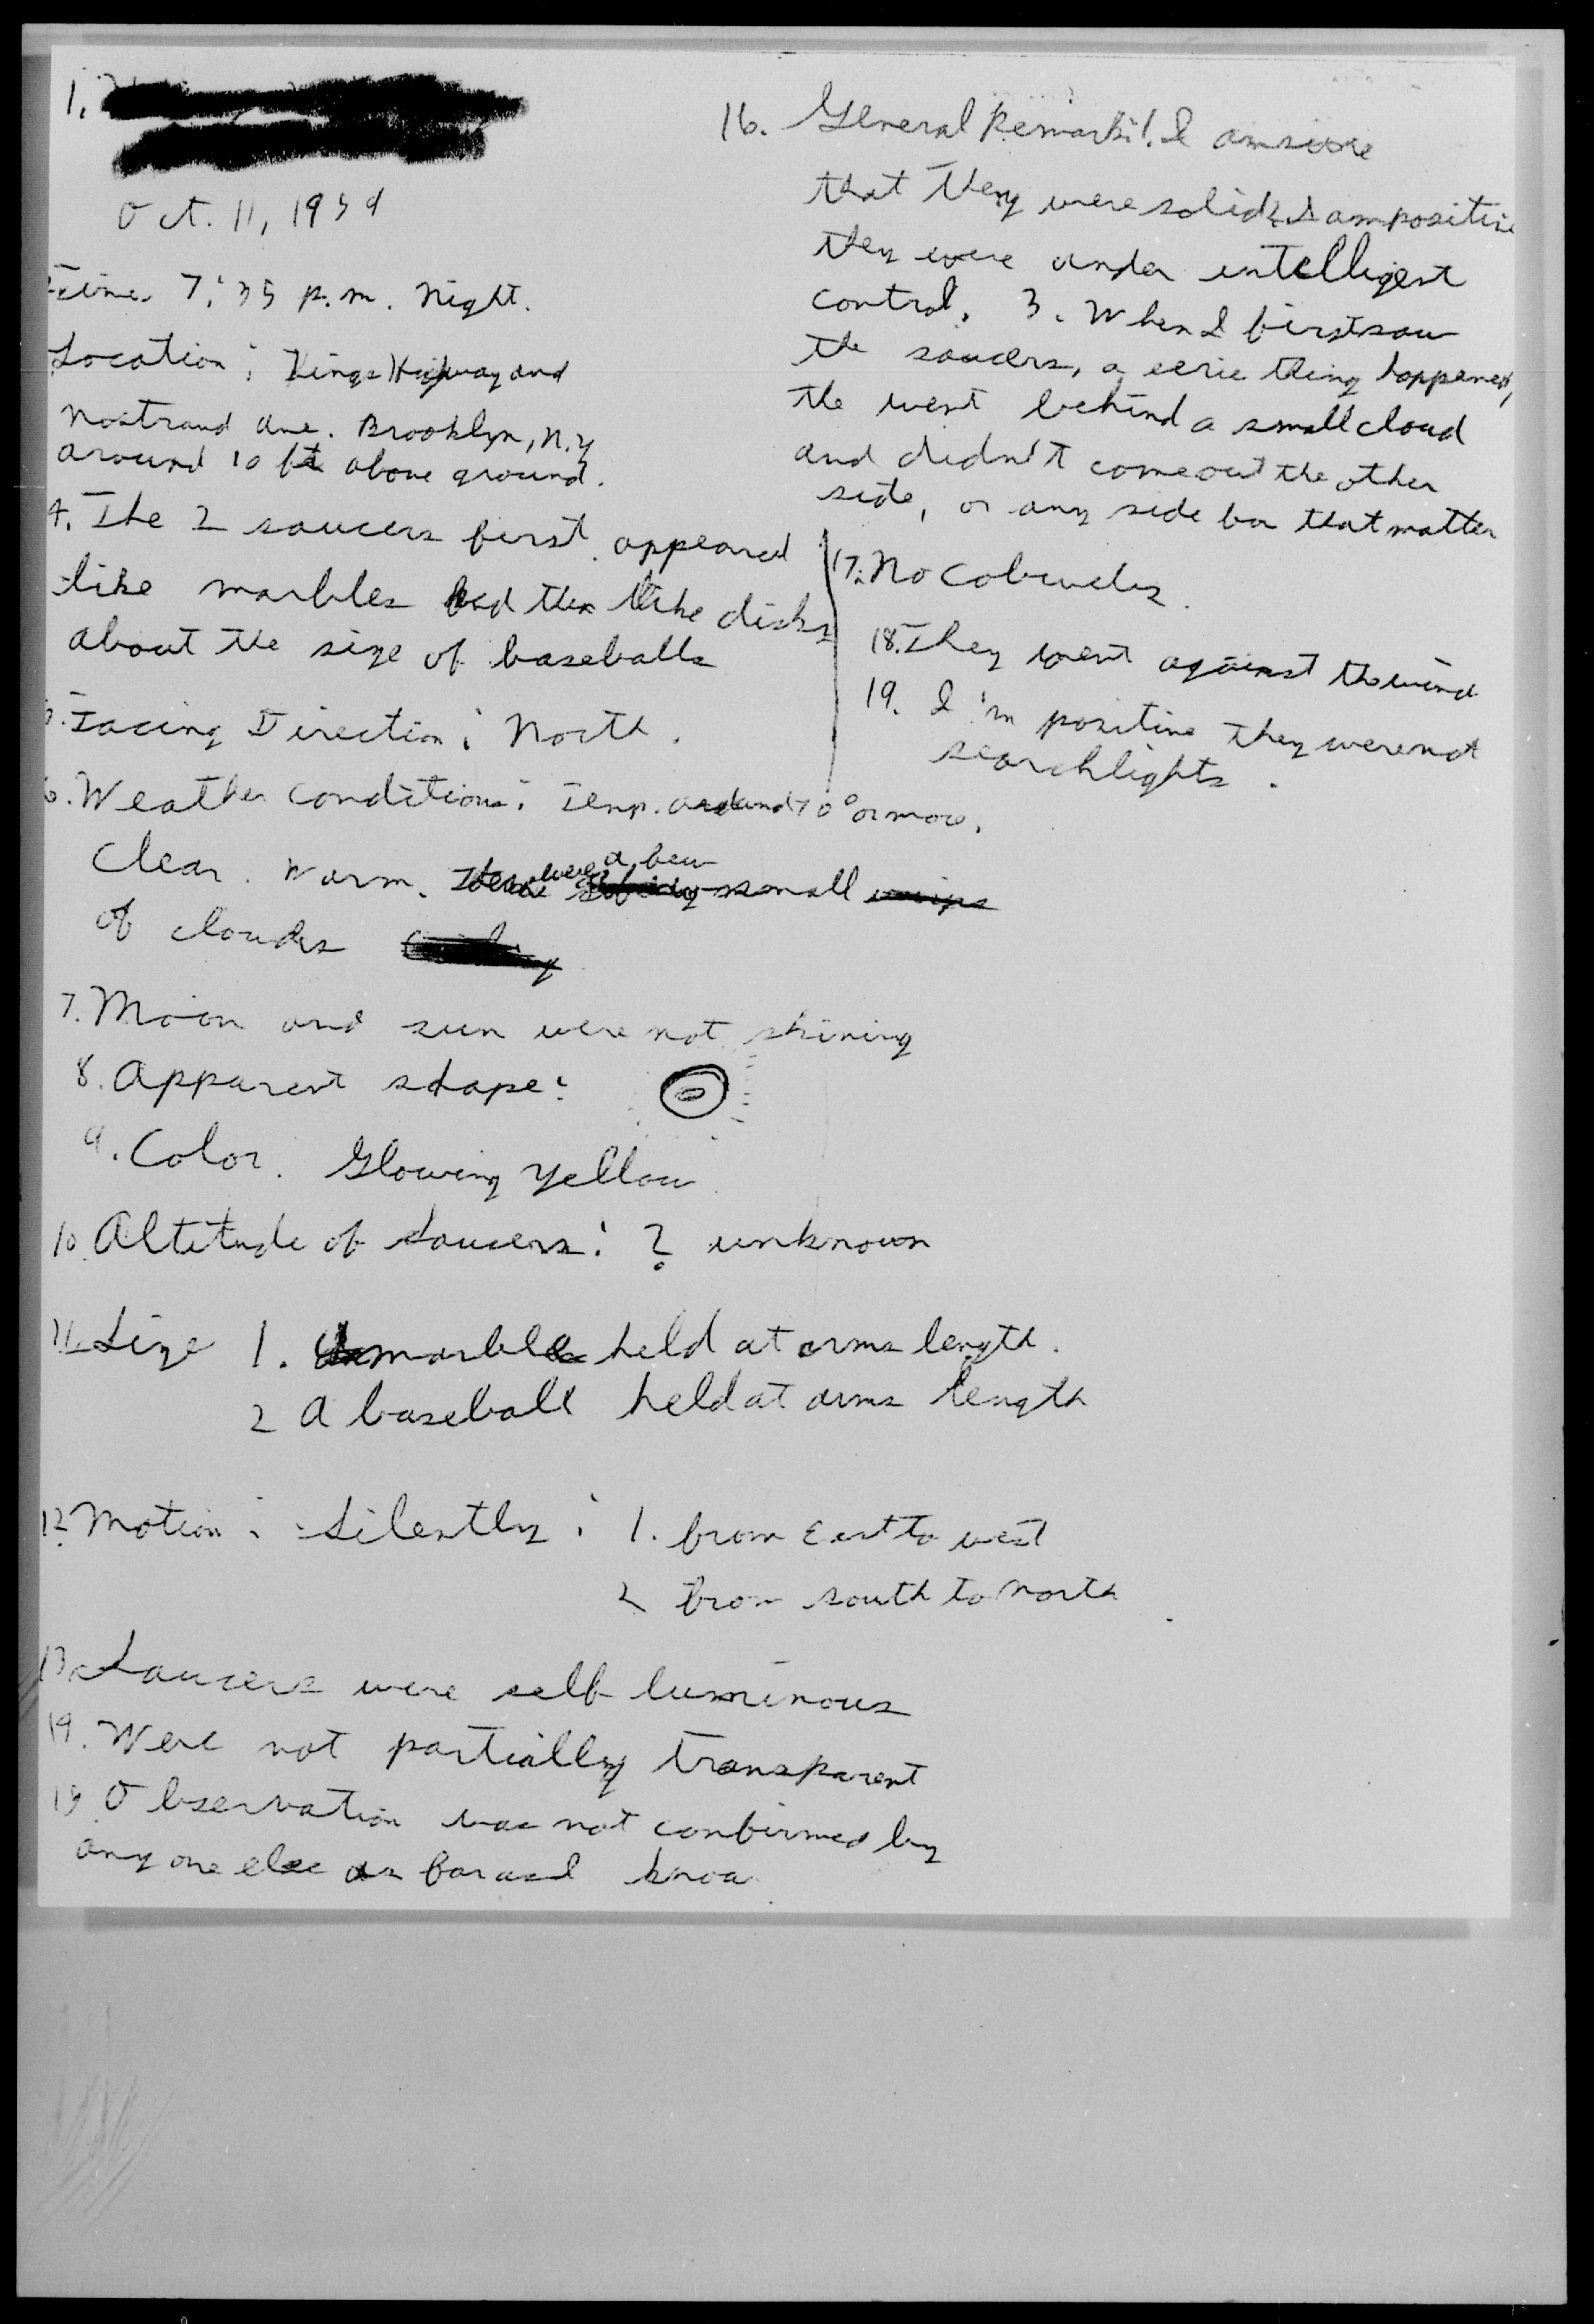 1.
Oct. 11, 1954
Time. 7:35 p.m. Night.
Location: Kings Highway and
Nostrand Ave. Brooklyn, N.Y
around 10 ft above ground.
4. The 2 saucers first appeared
like marbles and then like disks
about the size of baseballs
5. Facing Direction: North.
6. Weather conditions: Temp. around 70° or more.
Clear. Warm. There were a few small
of clouds
7. Moon and sun were not shining
8. Apparent shape:
9. Color. Glowing yellow
10. Altitude of saucers: ? unknown
11. Size 1. marble held at arms length.
2 A baseball held at arms length
12. Motion: Silently: 1. from East to west
2 from south to north
13. Saucers were self luminous
14. Were not partially transparent
15 Observation was not confirmed by
any one else as far as I know
16. General Remarks: 1. I am sure
that they were solid 2. I am positive
they were under intelligent
control. 3. When I first saw
the saucers, a eerie thing happened,
the went behind a small cloud
and didn't come out the other
side, or any side for that matter
17. No cobwebs.
18. They went against the wind
19. I'm positive they were not
searchlights.